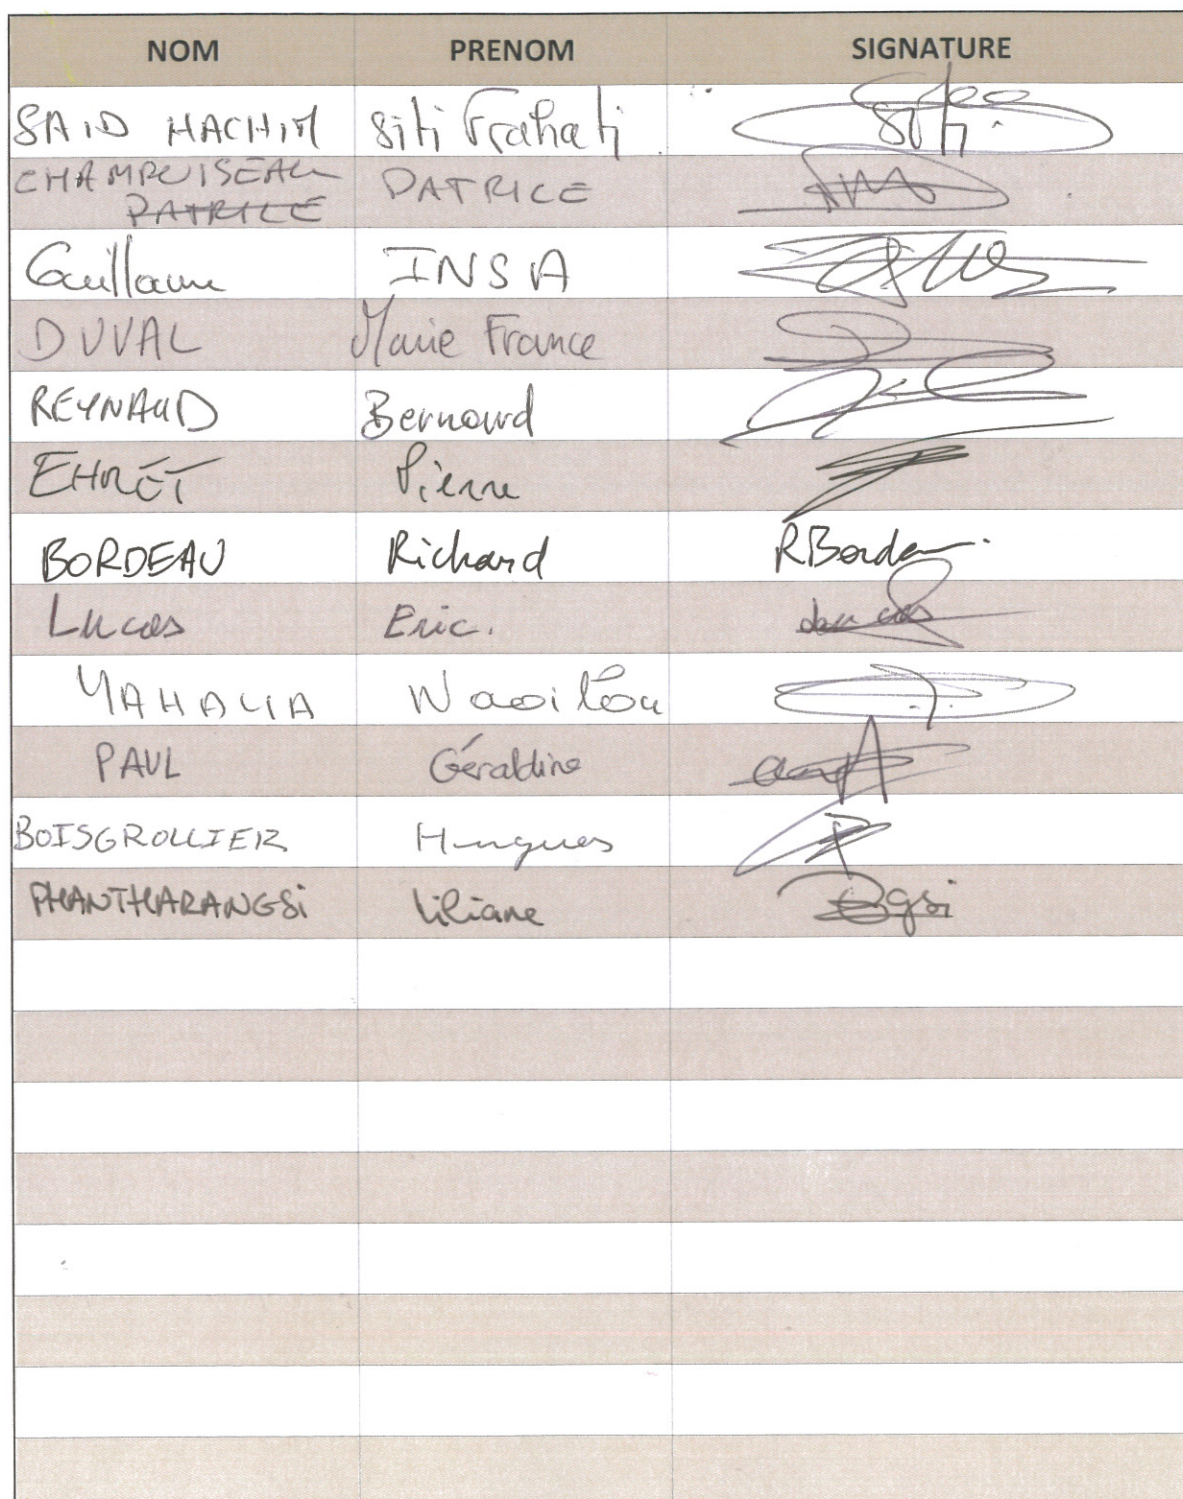 NOM PRENOM SIGNATURE
SAID HACHIM Siti Frahati Siti
CHAMPUISEAU PATRICE
PATRICE
Guillaume INSA
DUVAL Marie France
REYNAUD Bernard
EHRET Pierre
BORDEAU Richard RBordeau
Lucas Eric. Lucas
YAHAYA Waoilou
PAUL Géraldine
BOISGROLLIER Hugues
PHANTHARANGSi Liliane gsi